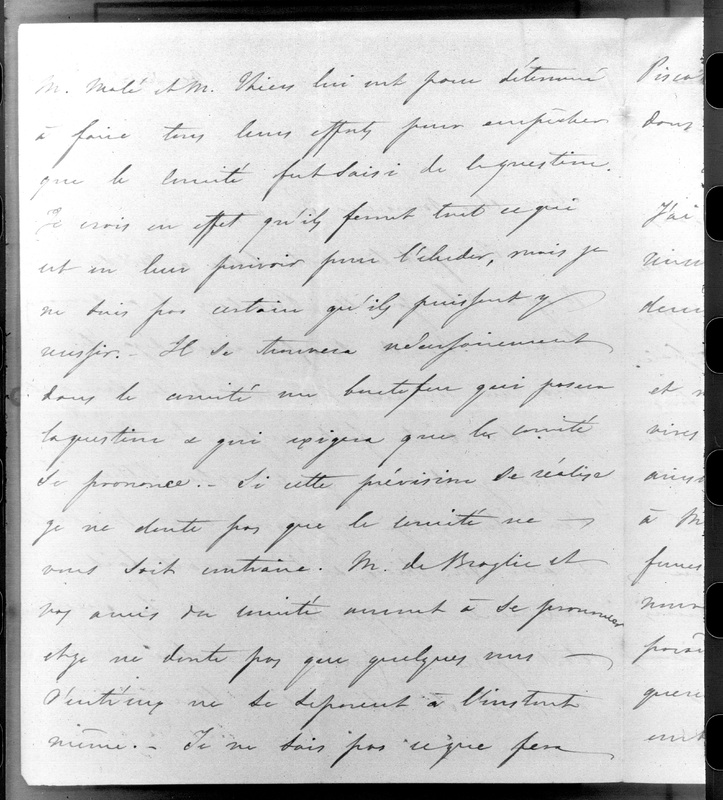 M. Molé et M. Thiers lui ont paru déterminé
à faire tous leurs efforts pour empêcher
que le comité fut saisi de la question.
Je crois en effet qu'ils feront tout ce qui
est en leur pouvoir pour l'éluder, mais je
ne suis pas certain qu'ils puissent y
réussir. - Il se trouvera nécessairement
dans le comité un boutefeu qui posera
la question & qui exigera que le comité
se prononce. - Si cette prévision se réalise
je ne doute pas que le comité ne
vous soit contraire. M. de Broglie et
vos amis du comité auront à se prononcer
et je ne doute pas que quelques uns
d'entr'eux ne se séparent à l'instant
même. - Je ne sais pas ce que fera
Pisca
dans
J'ai
et
à M